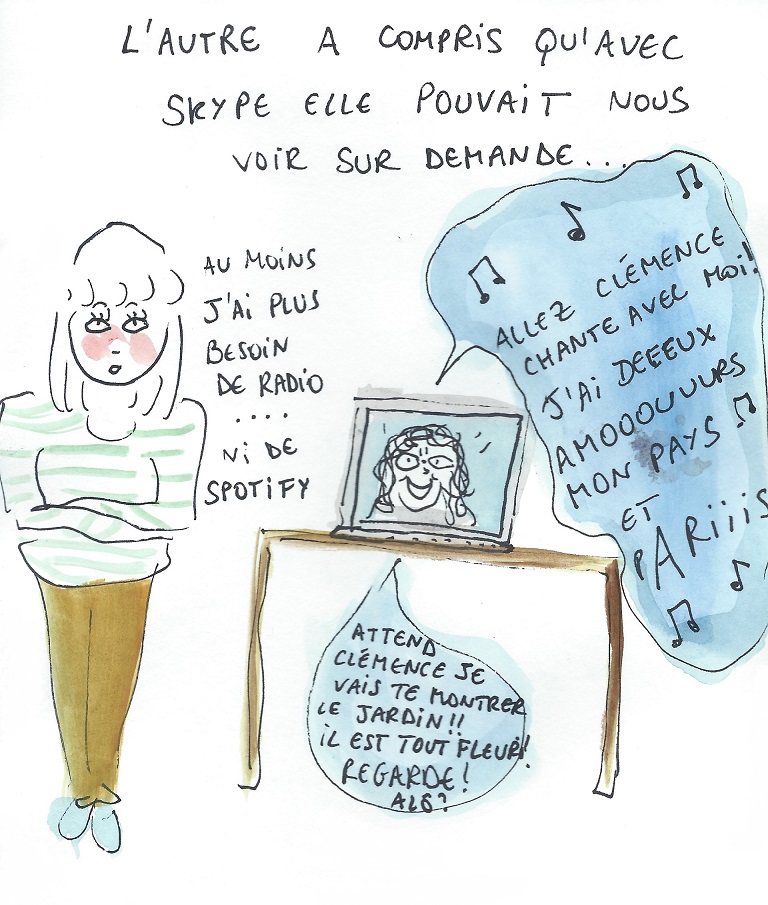 L'AUTRE A COMPRIS QU'AVEC
SKYPE ELLE POUVAIT NOUS
VOIR SUR DEMANDE...
AU MOINS
J'AI PLUS
BESOIN
DE RADIO
....
NI DE
SPOTIFY
ALLEZ CLÉMENCE
CHANTE AVEC MOI!
J'AI DEEEUX
AMOOOUUURS
MON PAYS
ET
PARIIIS
ATTEND
CLÉMENCE JE
VAIS TE MONTRER
LE JARDIN!!
IL EST TOUT FLEURI!
REGARDE!
ALÔ?